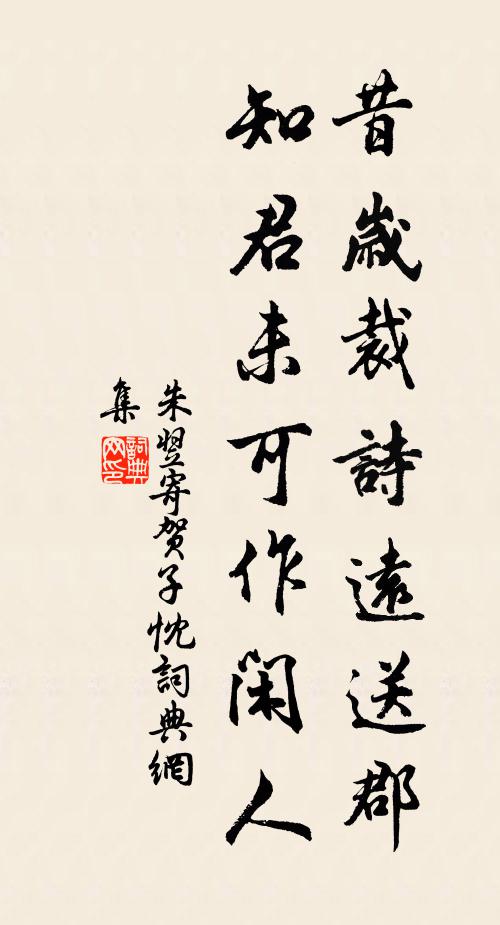 昔歲裁詩遠送郡
知君未可作閑人
朱翌寄賀子忱詞典網
集
詞典
网印